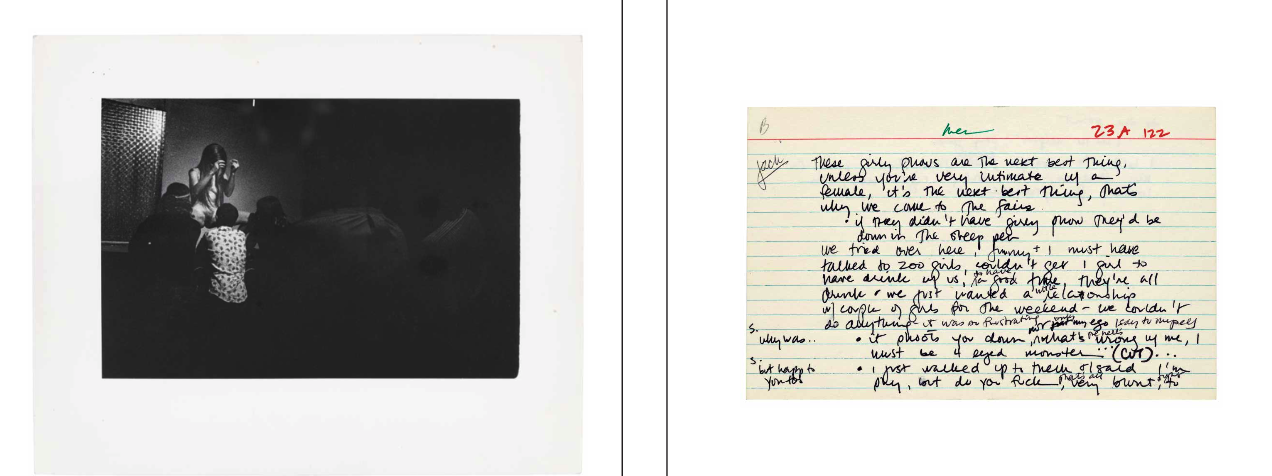 B men 23A 122
Jack These girly shows are the next best thing,
unless you're very intimate w/ a
female, it's the next best thing, thats
why we come to the fairs
• if they didn't have girly show they'd be
down in the sheep pen
we tried over here, funny + I must have
talked to 200 girls, couldn't get 1 girl to
have drink w/ us, to have good time, they're all
drunk • we just wanted a relationship
w/ couple of girls for the weekend - we couldn't
do anything it was so frustrating my ego lady to myself
S. why was.. • it shoots you down, what's wrong w/ me, I
must be 4 eyed monster... (CUT)...
S. but happy to • I just walked up to them + said I'm
you too play, but do you fuck, thats all very blunt, to